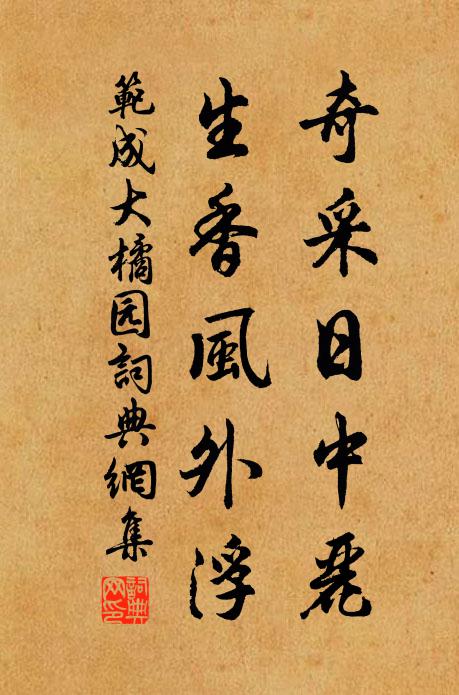 奇采日中麗
生香風外浮
範成大橘园詞典網集
詞典网印